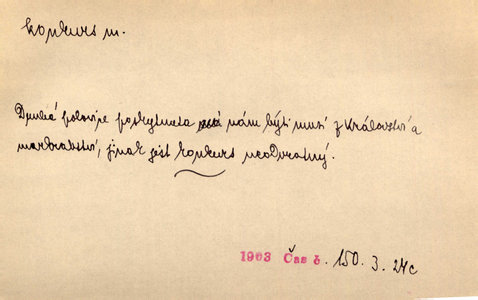 konkurs m.
Druhá polovice poskytnuta nám býti musí z Království a
markrabství, jinak jest konkurs neodvratný.
1903 Čas č. 150. 3. 24c